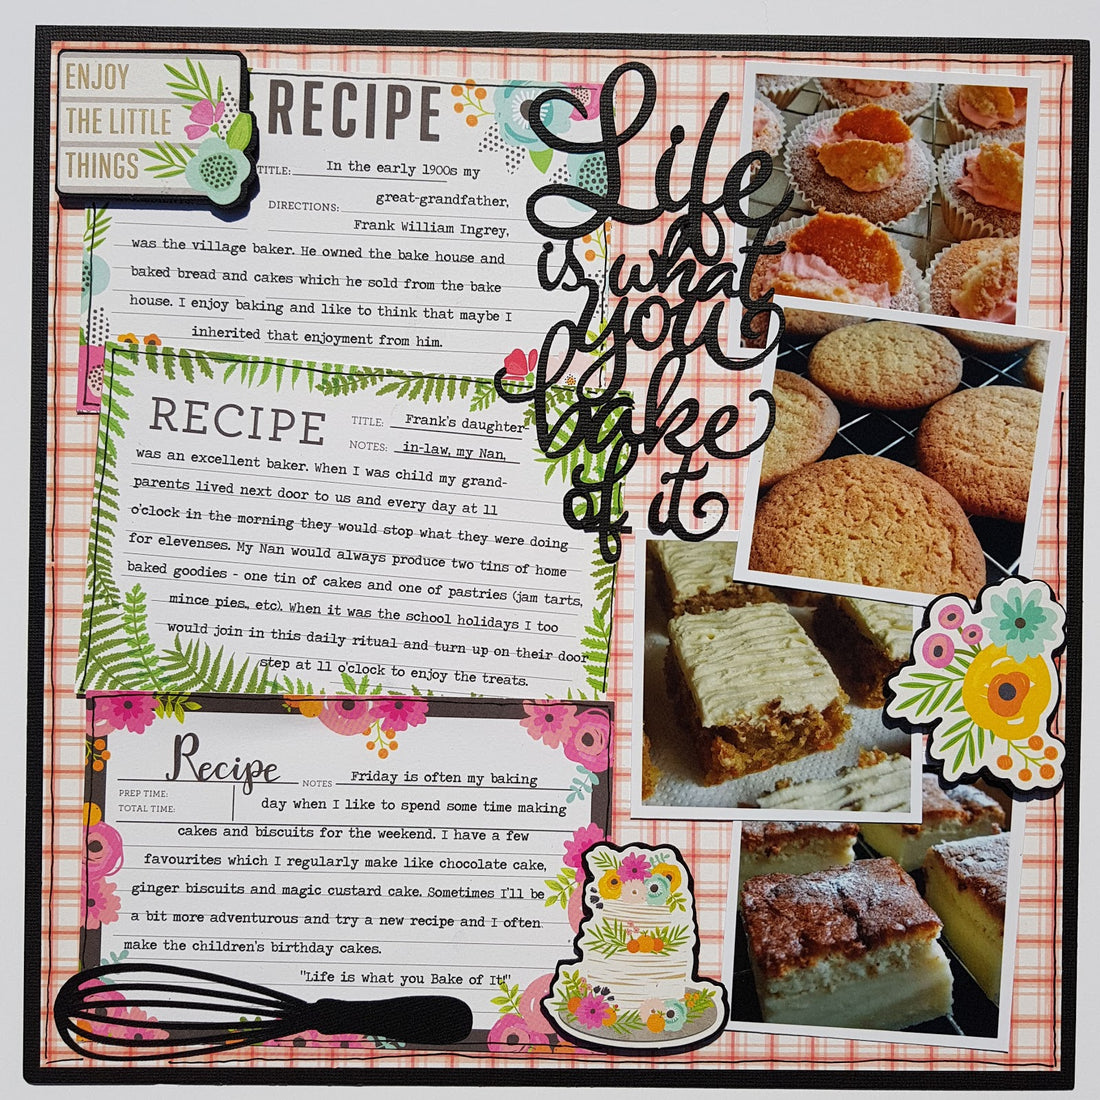 ENJOY
THE LITTLE
THINGS
RECIPE
TITLE: In the early 1900s my
DIRECTIONS: great-grandfather,
Frank William Ingrey,
was the village baker. He owned the bake house and
baked bread and cakes which he sold from the bake
house. I enjoy baking and like to think that maybe I
inherited that enjoyment from him.
Life
is what
you
bake
of it
RECIPE
TITLE: Frank's daughter-
NOTES: in-law, my Nan,
was an excellent baker. When I was child my grand-
parents lived next door to us and every day at 11
o'clock in the morning they would stop what they were doing
for elevenses. My Nan would always produce two tins of home
baked goodies - one tin of cakes and one of pastries (jam tarts,
mince pies, etc). When it was the school holidays I too
would join in this daily ritual and turn up on their door
step at 11 o'clock to enjoy the treats.
Recipe
NOTES Friday is often my baking
PREP TIME:
TOTAL TIME:
day when I like to spend some time making
cakes and biscuits for the weekend. I have a few
favourites which I regularly make like chocolate cake,
ginger biscuits and magic custard cake. Sometimes I'll be
a bit more adventurous and try a new recipe and I often
make the children's birthday cakes.
"Life is what you Bake of It!"